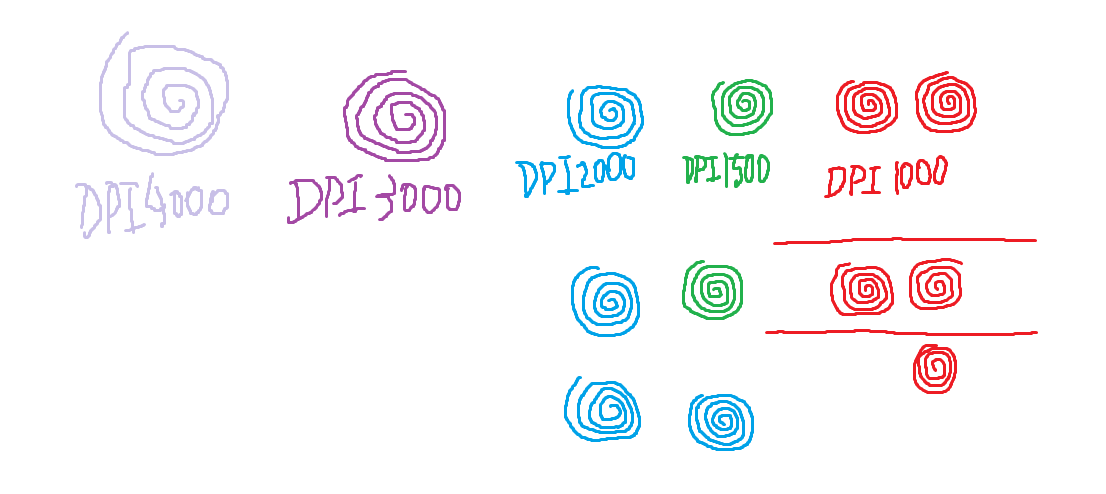 DPI4000
DPI 3000
DPI2000
DPI1500
DPI 1000